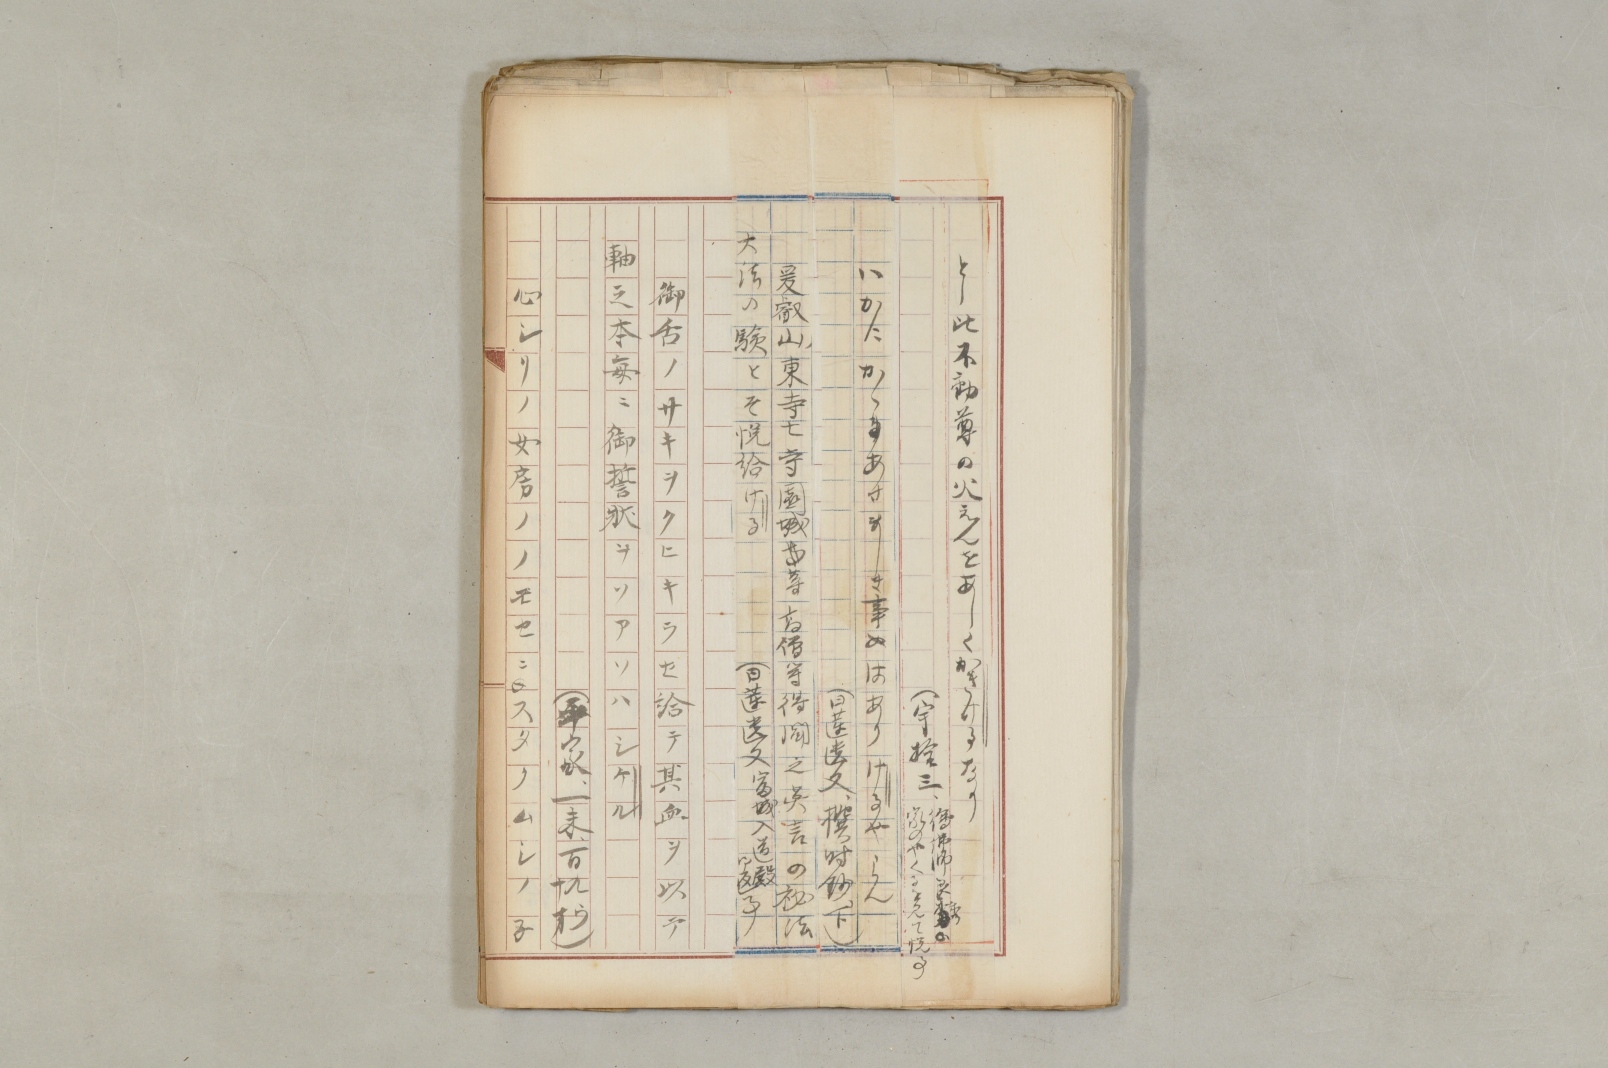 とし此不動尊の火えんをあしくかきけるなり
(宇拾三、繪佛師良秀
家のやくるを見て悦事
いかにかゝるあさましき事やはありけるやらん
(日蓮遺文、撰時鈔下)
爰叡山東寺七寺園城寺等高僧等得聞之真言の秘法
大法の験とそ悦給ける (日蓮遺文富城入道殿御返事)
御舌ノサキヲクヒキラセ給テ其血ヲ以テ
軸之本毎ニ御誓状ヲソアソハシケル
(平家、一末、百十九オ)
心シリノ女房ノノモセニスタクムシノ子